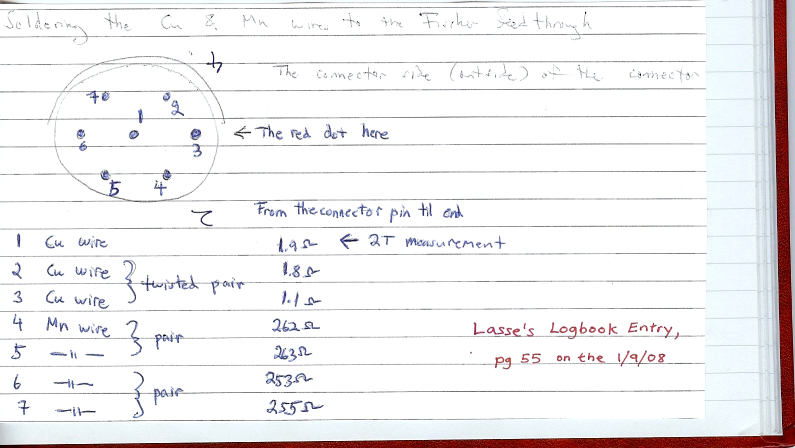 Soldering the Cu & Mn wires to the Fischer feedthrough
The connector side (outside) of the connector
7 2
1
6 3 ← The red dot here
5 4
From the connector pin til end
1 Cu wire 1.9Ω ← 2T measurement
2 Cu wire 1.8Ω
twisted pair
3 Cu wire 1.1Ω
4 Mn wire 262Ω
pair
5 —||— 263Ω
6 —||— 253Ω
pair
7 —||— 255Ω
Lasse's Logbook Entry,
pg 55 on the 1/9/08